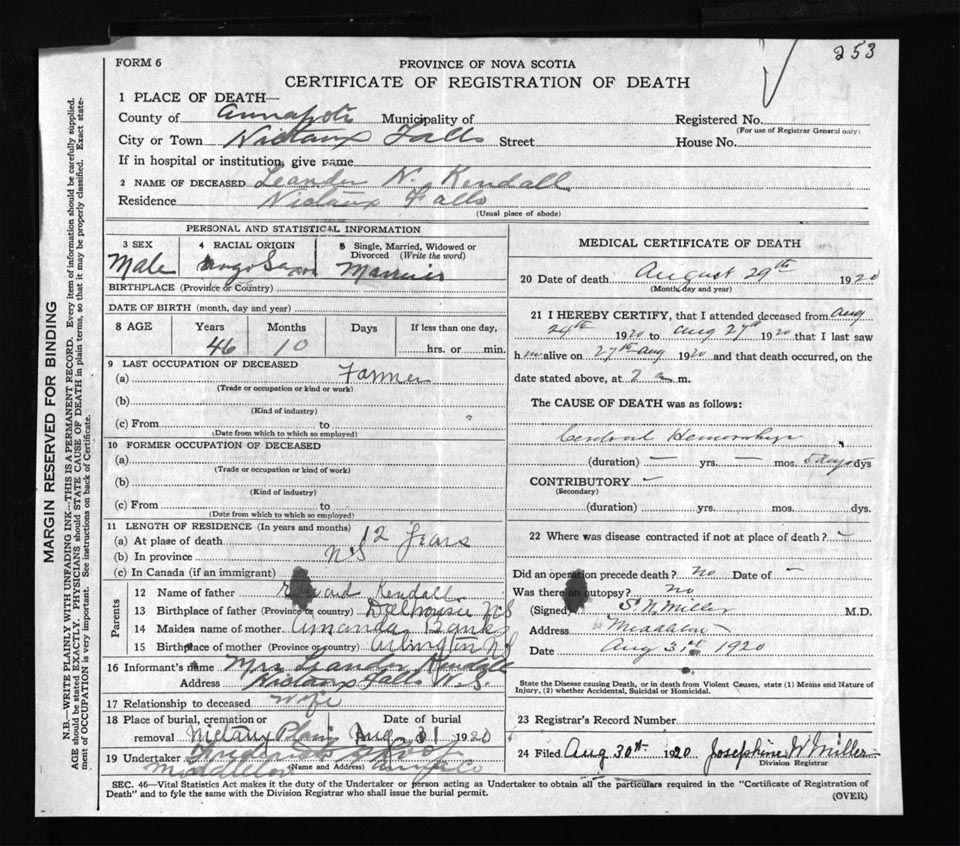 253
FORM 6
PROVINCE OF NOVA SCOTIA
CERTIFICATE OF REGISTRATION OF DEATH
1 PLACE OF DEATH—
County of Annapolis Municipality of Registered No.
(For use of Registrar General only)
City or Town Nictaux Falls Street House No.
If in hospital or institution, give name
2 NAME OF DECEASED Leander N. Kendall
Residence Nictaux Falls
(Usual place of abode)
PERSONAL AND STATISTICAL INFORMATION
3 SEX 4 RACIAL ORIGIN 5 Single, Married, Widowed or Divorced (Write the word)
Male Married
BIRTHPLACE (Province or Country)
DATE OF BIRTH (month, day and year)
8 AGE Years Months Days If less than one day,
46 10 hrs. or min.
9 LAST OCCUPATION OF DECEASED
(a) Farmer
(Trade or occupation or kind or work)
(b)
(Kind of industry)
(c) From to
(Date from which to which so employed)
10 FORMER OCCUPATION OF DECEASED
(a)
(Trade or occupation or kind of work)
(b)
(Kind of industry)
(c) From to
(Date from which to which so employed)
11 LENGTH OF RESIDENCE (In years and months)
(a) At place of death 12 Years
(b) In province N.S
(c) In Canada (if an immigrant)
Parents
12 Name of father Kendall
13 Birthplace of father (Province or country) Dalhousie N.S
14 Maiden name of mother Amanda Banks
15 Birthplace of mother (Province or country) Arlington N.S
16 Informant's name Mrs Leander Kendall
Address Nictaux Falls N.S.
17 Relationship to deceased Wife
18 Place of burial, cremation or Date of burial
removal Nictaux Plains Aug 31 1920
19 Undertaker
(Name and Address)
Middleton
MEDICAL CERTIFICATE OF DEATH
20 Date of death August 29th 1920
(Month, day and year)
21 I HEREBY CERTIFY, that I attended deceased from Aug
24th 1920 to Aug 27th 1920 that I last saw
him alive on 27th Aug 1920 and that death occurred, on the
date stated above, at 2 a m.
The CAUSE OF DEATH was as follows:
Cerebral
(duration) — yrs. — mos. 5 days dys
CONTRIBUTORY —
(Secondary)
(duration) yrs. mos. dys.
22 Where was disease contracted if not at place of death? —
Did an operation precede death? no Date of —
Was there an autopsy? no
(Signed) S. N. Miller M.D.
Address Middleton
Date Aug 31st 1920
State the Disease causing Death, or in death from Violent Causes, state (1) Means and Nature of Injury, (2) whether Accidental, Suicidal or Homicidal.
23 Registrar's Record Number
24 Filed Aug 30th 1920 Josephine W Miller
Division Registrar
SEC. 46—Vital Statistics Act makes it the duty of the Undertaker or person acting as Undertaker to obtain all the particulars required in the "Certificate of Registration of
Death" and to fyle the same with the Division Registrar who shall issue the burial permit.
(OVER)
MARGIN RESERVED FOR BINDING
N.B.—WRITE PLAINLY WITH UNFADING INK—THIS IS A PERMANENT RECORD. Every item of information should be carefully supplied.
AGE should be stated EXACTLY. PHYSICIANS should STATE CAUSE OF DEATH in plain terms, so that it may be properly classified. Exact state-
ment of OCCUPATION is very important. See instructions on back of Certificate.